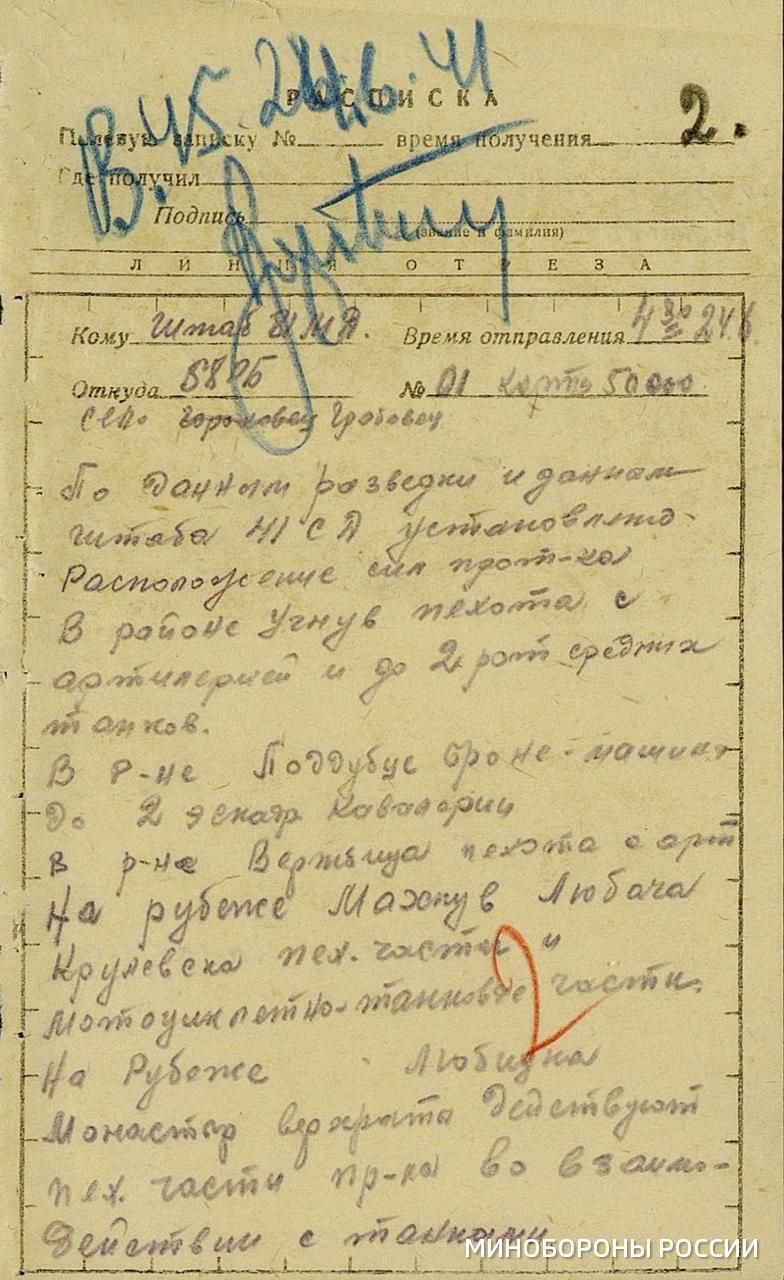 В. 45. 24.6.41
РАСПИСКА
2.
Полевую записку № время получения
Где получил
Подпись
(звание и фамилия)
ЛИНИЯ ОТРЕЗА
Кому штаб Время отправления 4 30 24.6.
Откуда № 01 карта 50 000
Село Гробовец
По данным разведки и данным
штаба 41 СД установлено
Расположение сил прот-ка
В районе Угнув пехота с
артилерией и до 2 рот средних
танков.
В р-не Поддубце броне-машин
до 2 эскадр кавалерии
в р-не Вержбица пехота с арт
На рубеже Махнув Любача
пех. части и
Мотоциклетно-танковые части.
2
На Рубеже
Монастыр верхрата Действуют
пех. части пр-ка во взаимо-
Действии с танками
МИНОБОРОНЫ РОССИИ